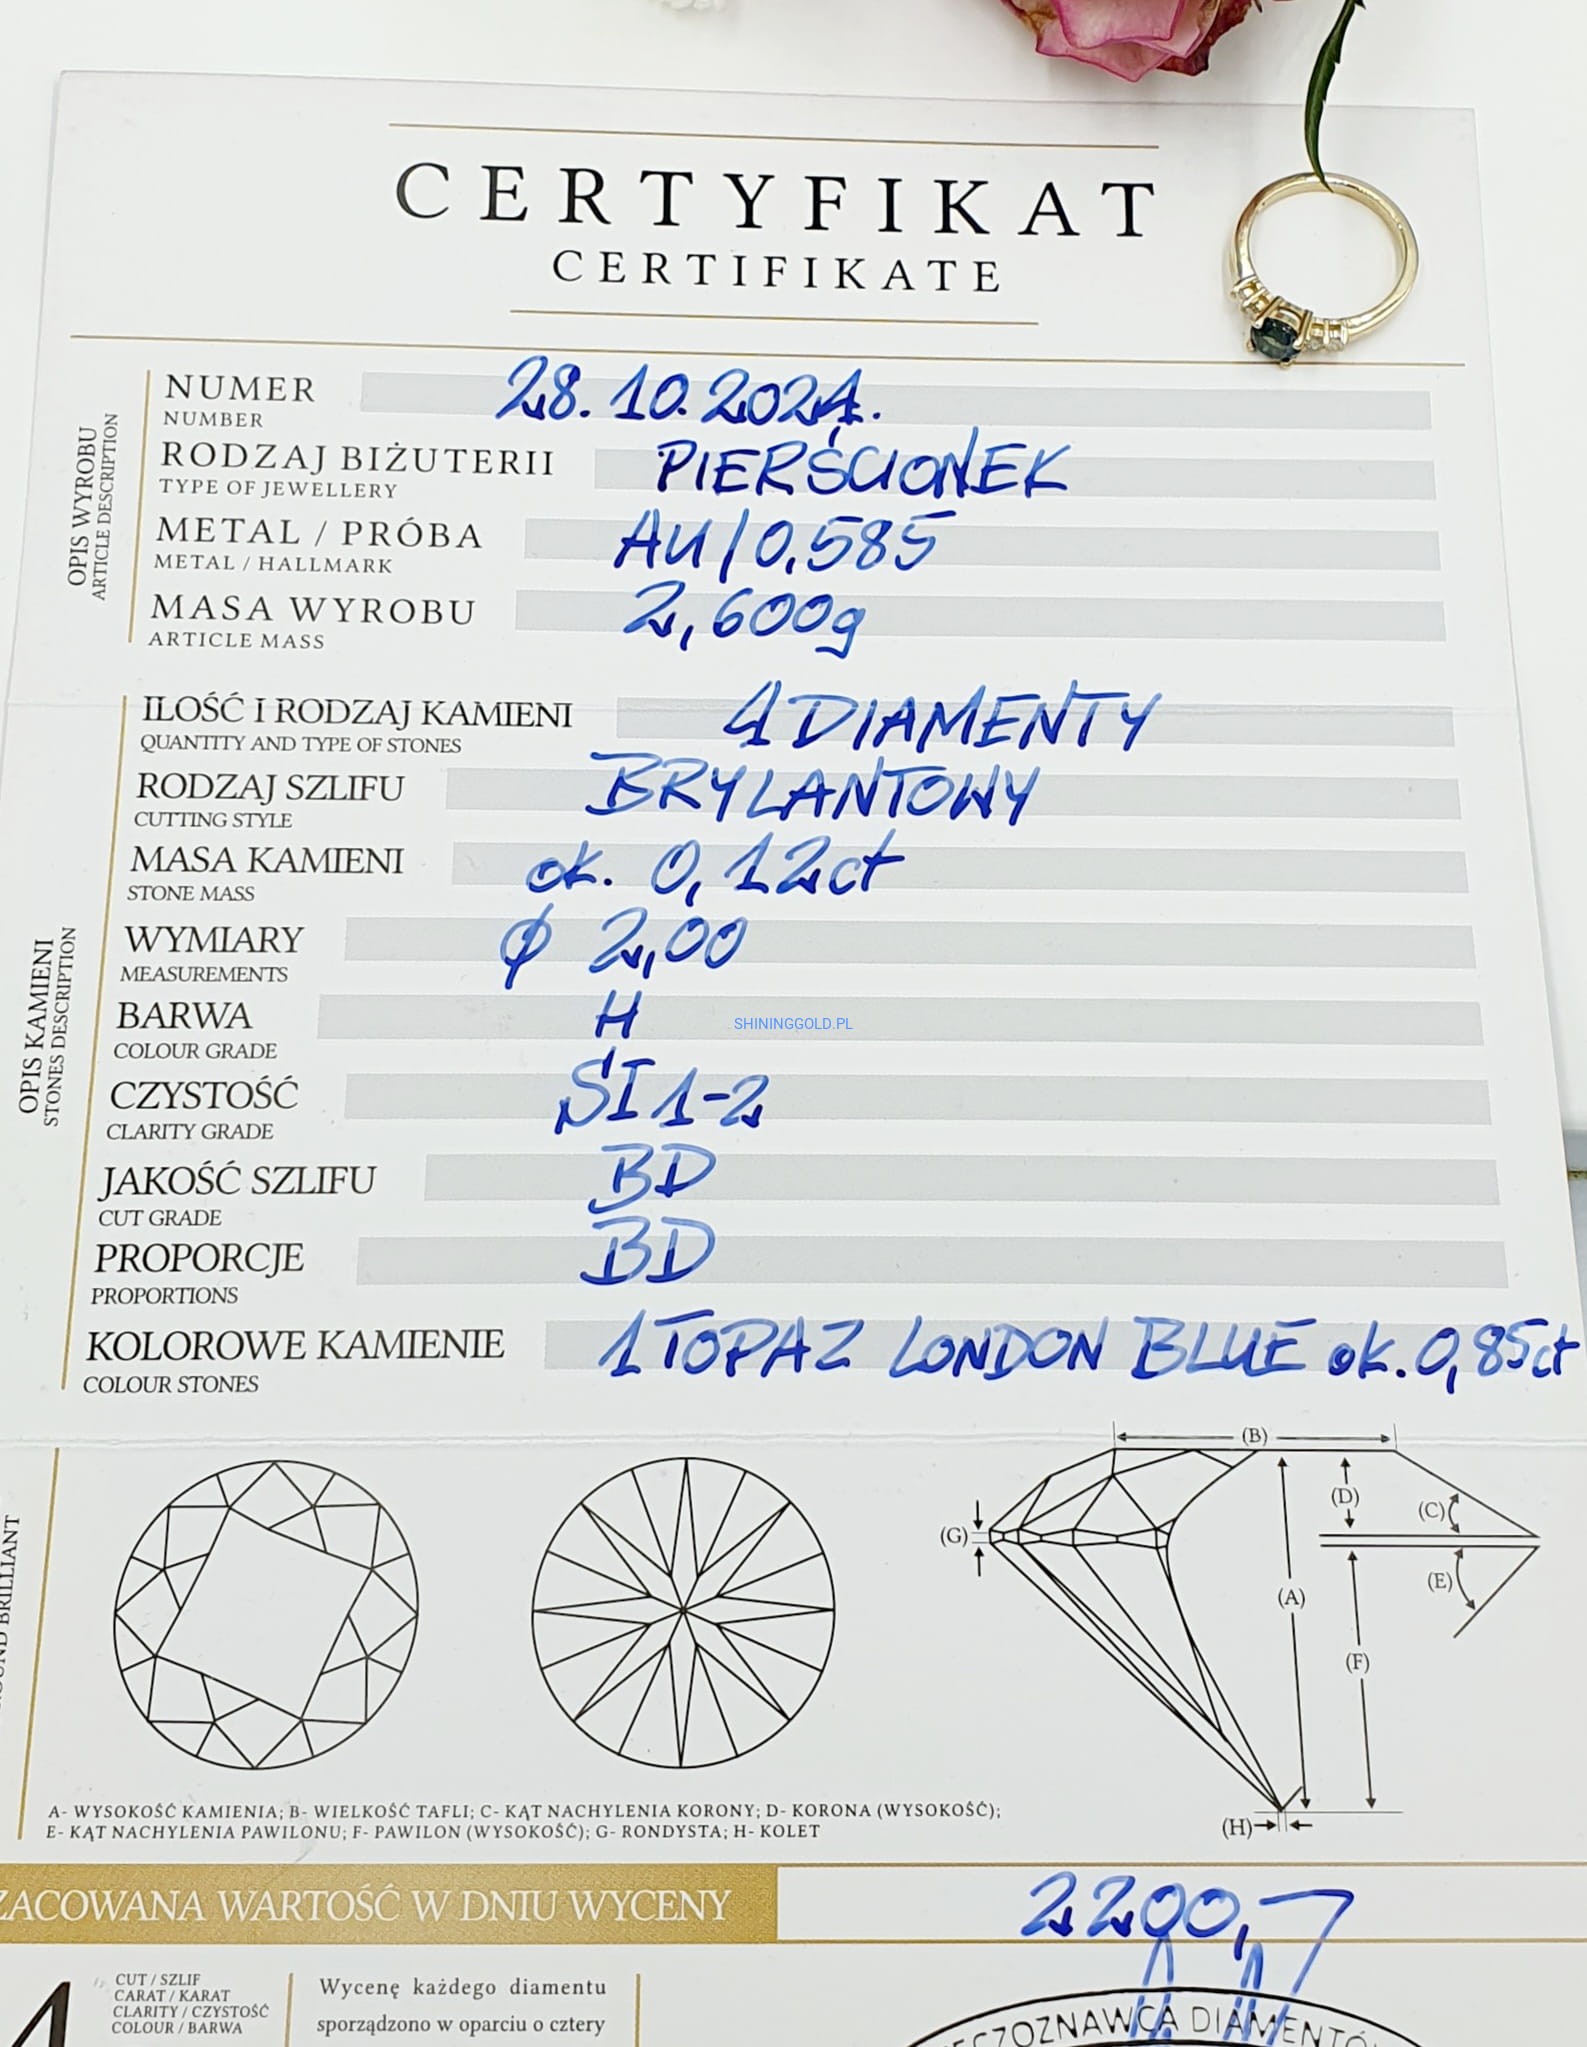 CERTYFIKAT
CERTIFIKATE
OPIS WYROBU
ARTICLE DESCRIPTION
NUMER 28.10.2024.
NUMBER
RODZAJ BIŻUTERII PIERŚCIONEK
TYPE OF JEWELLERY
METAL / PRÓBA AU/0,585
METAL / HALLMARK
MASA WYROBU 2,600g
ARTICLE MASS
OPIS KAMIENI
STONES DESCRIPTION
ILOŚĆ I RODZAJ KAMIENI 4 DIAMENTY
QUANTITY AND TYPE OF STONES
RODZAJ SZLIFU BRYLANTOWY
CUTTING STYLE
MASA KAMIENI ok. 0,12ct
STONE MASS
WYMIARY ϕ 2,00
MEASUREMENTS
BARWA H
COLOUR GRADE
SHININGGOLD.PL
CZYSTOŚĆ SI 1-2
CLARITY GRADE
JAKOŚĆ SZLIFU BD
CUT GRADE
PROPORCJE BD
PROPORTIONS
KOLOROWE KAMIENIE 1 TOPAZ LONDON BLUE ok. 0,85ct
COLOUR STONES
BRILLIANT
(B)
(D)
(C)
(G)
(E)
(A)
(F)
(H)
A- WYSOKOŚĆ KAMIENIA; B- WIELKOŚĆ TAFLI; C- KĄT NACHYLENIA KORONY; D- KORONA (WYSOKOŚĆ);
E- KĄT NACHYLENIA PAWILONU; F- PAWILON (WYSOKOŚĆ); G- RONDYSTA; H- KOLET
ZACOWANA WARTOŚĆ W DNIU WYCENY 2200,-
4
CUT / SZLIF
CARAT / KARAT
CLARITY / CZYSTOŚĆ
COLOUR / BARWA
Wycenę każdego diamentu
sporządzono w oparciu o cztery
ECZOZNAWCA DIAMENTÓ